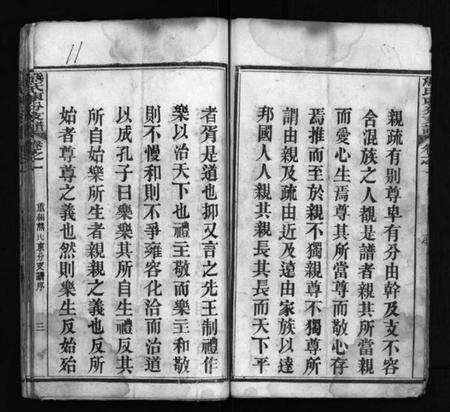 親疏有別尊卑有分由幹及支不容
含混族之人覩是譜者親其所當親
而愛心生焉尊其所當尊而敬心存
焉推而至於親不獨親尊不獨尊所
謂由親及疏由近及遠由家族以達
邦國人人親其親長其長而天下平
者胥是道也抑又言之先王制禮作
樂以治天下也禮主敬而樂主和敬
則不慢和則不爭雍容化洽而治道
以成孔子曰樂樂其所自生禮反其
所自始樂所生者親親之義也反所
始者尊尊之義也然則樂生反始始
重編熊氏東分支譜序
三
11